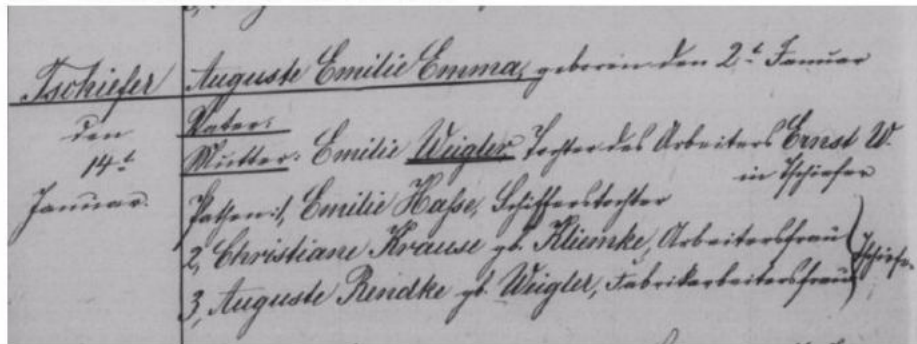 Tschiefer
den
14t
Januar.
Auguste Emilie Emma, geboren den 2t Januar
Vater:
Mutter: Emilie Weigler, Tochter des Arbeiters Ernst W.
in Tschiefer
Pathen: 1, Emilie Hasse, Schifferstochter
2, Christiane Krause gb. Kliemke, Arbeitersfrau
3, Auguste Rendke gb. Weigler, Fabrikarbeitersfrau
Tschiefer